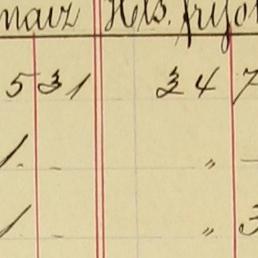 maiz Hls. frijol
5 31 34 7
1. - " -
1 - " 3